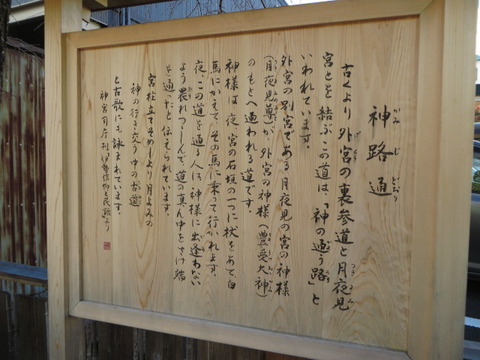 神路通
かみじどおり
古くより外宮の裏参道と月夜見
宮とを結ぶこの道は、「神の通う路」と
いわれています。
外宮の別宮である月夜見の宮の神様
(月夜見尊)が、外宮の神様(豊受大神)
のもとへ通われる道です。
神様は、夜、宮の石垣の一つに杖をあて白
馬にかえて、その馬に乗って行かれます。
夜、この道を通る人は、神様に出逢わない
よう畏れつつしんで道の真ん中をさけ端
を通ったと伝えられています。
宮柱立てそめしより月よみの
神の行き交う中の古道
と古歌にも詠まれています。
神宮司庁刊「伊勢信仰と民俗」より